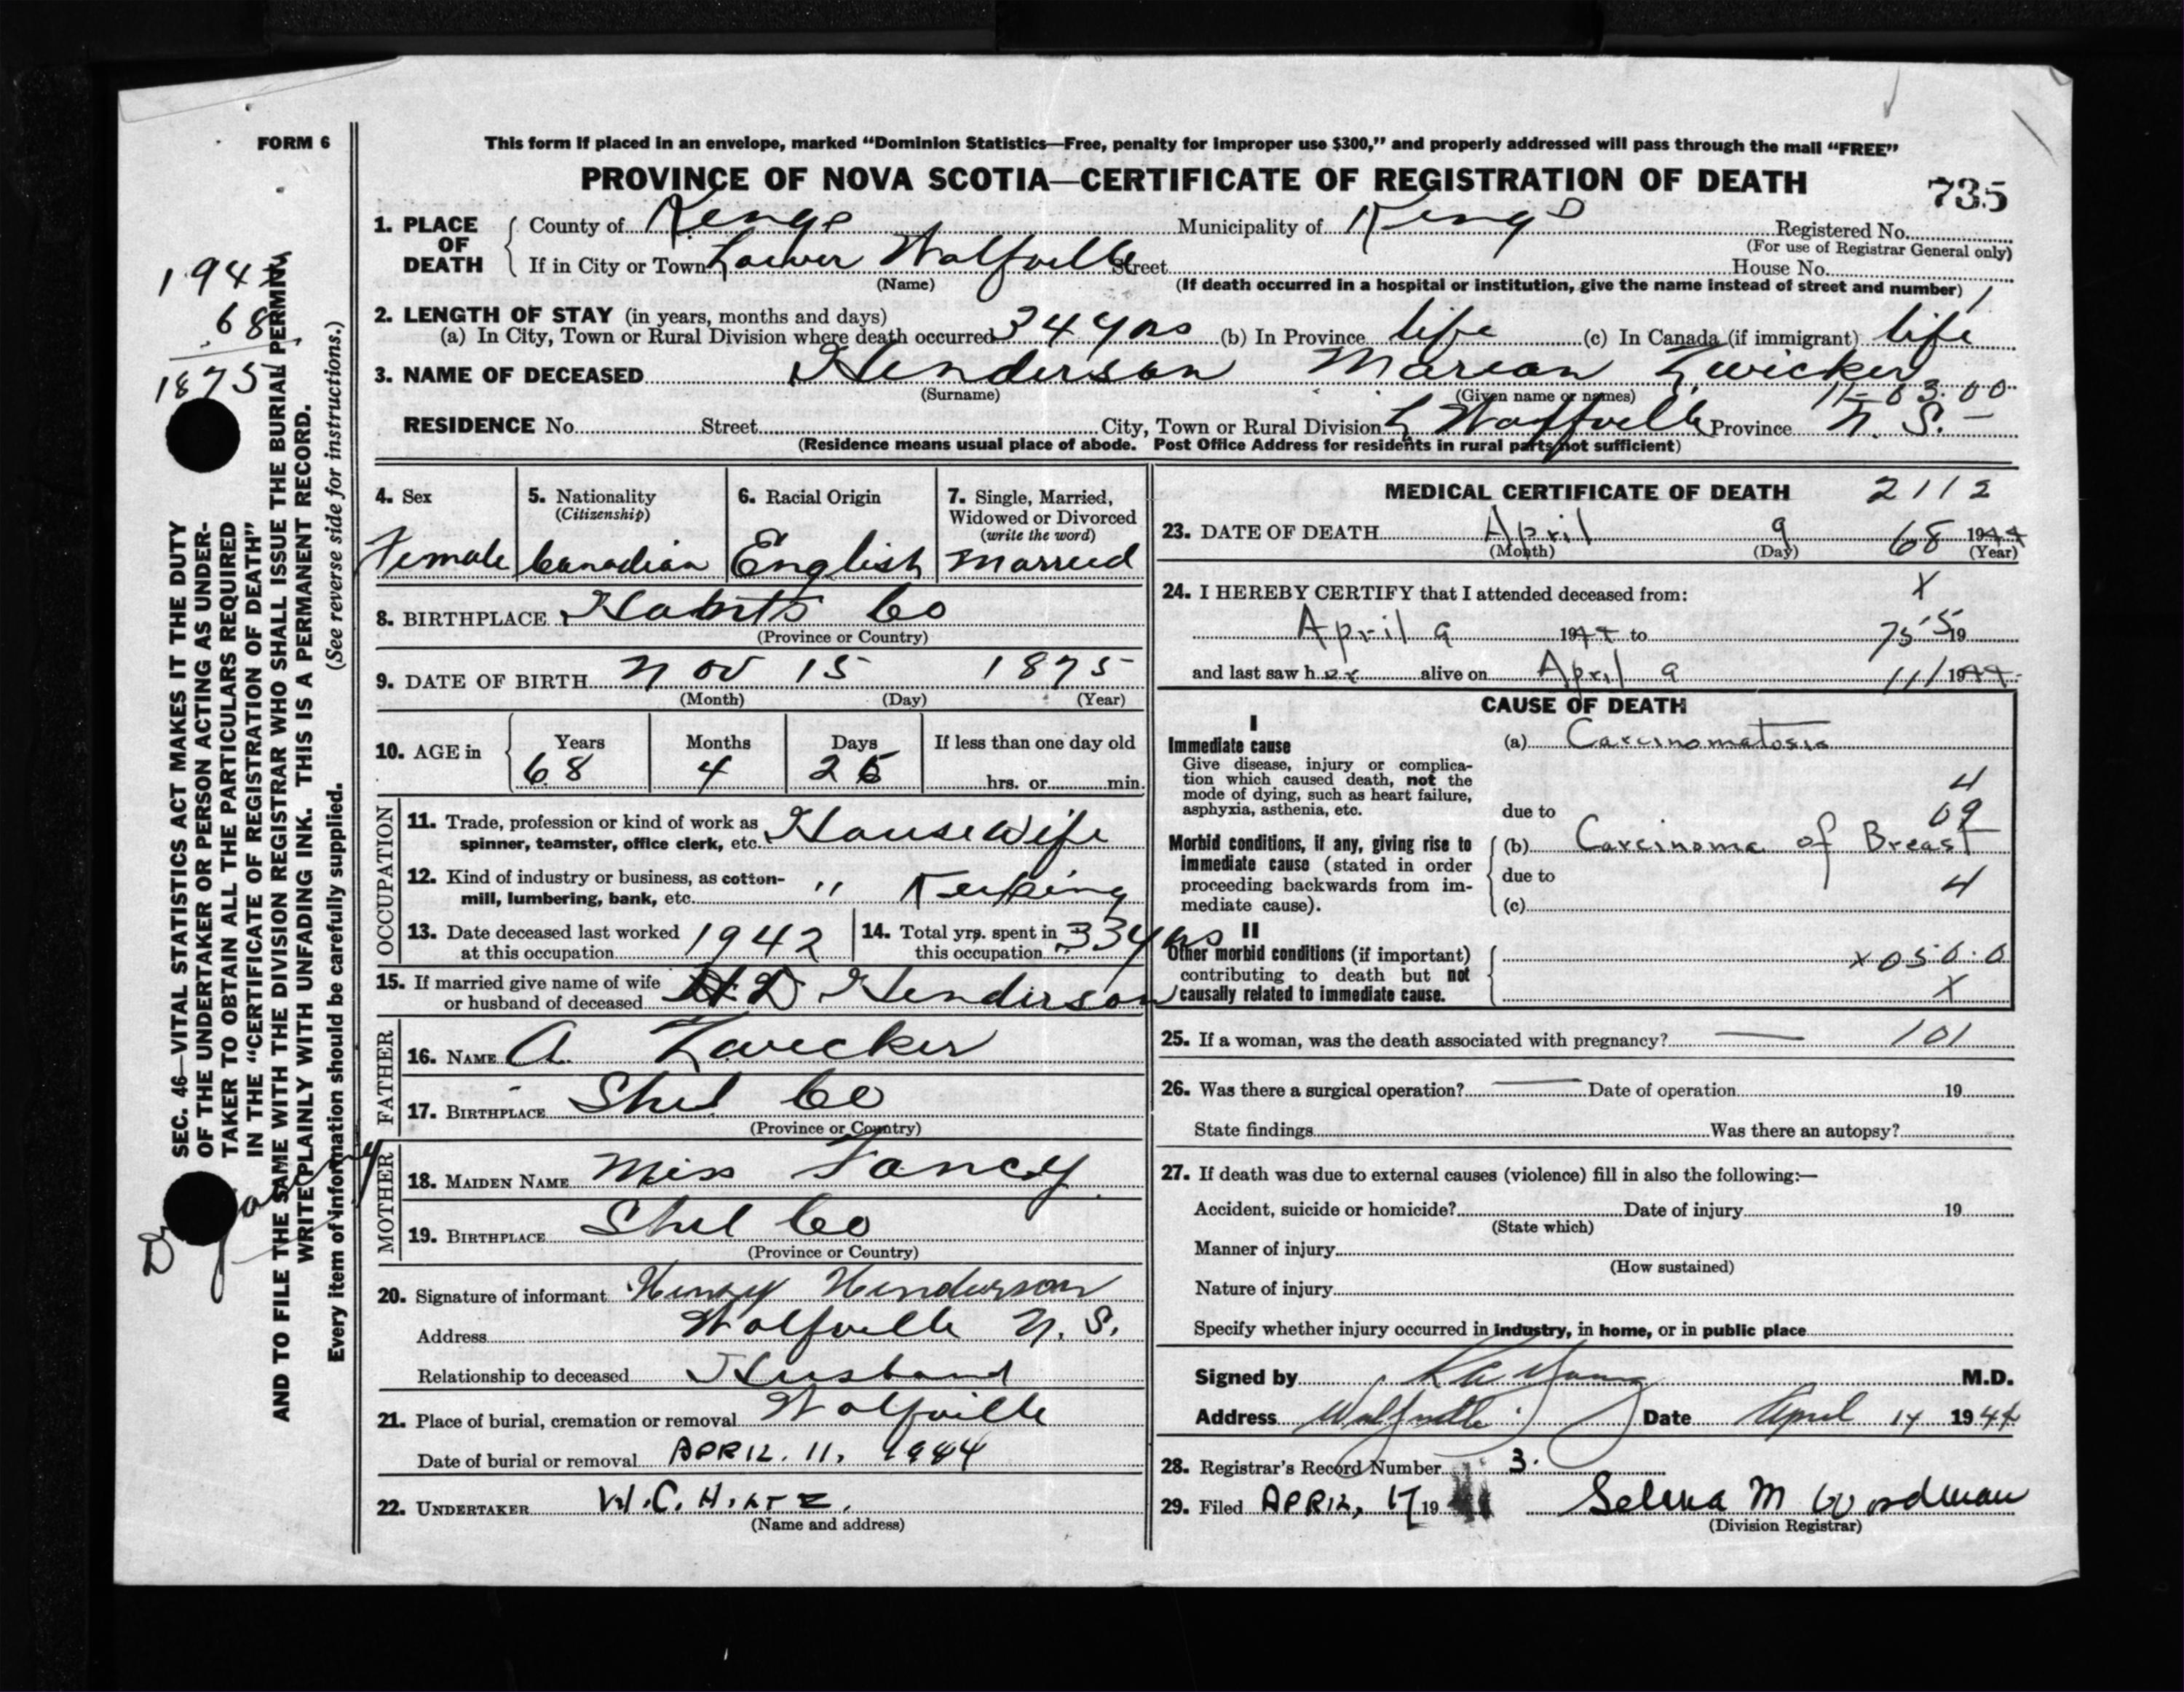 FORM 6
This form if placed in an envelope, marked “Dominion Statistics—Free, penalty for improper use $300,” and properly addressed will pass through the mail “FREE”
PROVINCE OF NOVA SCOTIA—CERTIFICATE OF REGISTRATION OF DEATH
735
1. PLACE OF DEATH
County of Kings Municipality of Kings Registered No.
(For use of Registrar General only)
If in City or Town Lower Wolfville Street House No.
(Name) (If death occurred in a hospital or institution, give the name instead of street and number)
2. LENGTH OF STAY (in years, months and days)
(a) In City, Town or Rural Division where death occurred 34 yrs (b) In Province life (c) In Canada (if immigrant) life
3. NAME OF DECEASED Henderson Marion Zwicker
(Surname) (Given name or names) 11-03.00
RESIDENCE No. Street City, Town or Rural Division L Wolfville Province N. S.
(Residence means usual place of abode. Post Office Address for residents in rural parts not sufficient)
4. Sex
Female
5. Nationality
(Citizenship)
Canadian
6. Racial Origin
English
7. Single, Married, Widowed or Divorced
(write the word)
Married
8. BIRTHPLACE Hants Co
(Province or Country)
9. DATE OF BIRTH Nov 15 1875
(Month) (Day) (Year)
10. AGE in
Years Months Days If less than one day old
68 4 25 hrs. or min.
OCCUPATION
11. Trade, profession or kind of work as
spinner, teamster, office clerk, etc. House Wife
12. Kind of industry or business, as cotton-
mill, lumbering, bank, etc. " Keeping
13. Date deceased last worked
at this occupation 1942
14. Total yrs. spent in
this occupation 33 yrs
15. If married give name of wife
or husband of deceased H.D Henderson
FATHER
16. NAME A. Zwicker
17. BIRTHPLACE Shel Co
(Province or Country)
MOTHER
18. MAIDEN NAME Miss Fancy
19. BIRTHPLACE Shel Co
(Province or Country)
20. Signature of informant Henry Henderson
Address Wolfville N. S.
Relationship to deceased Husband
21. Place of burial, cremation or removal Wolfville
Date of burial or removal APRIL. 11, 1944
22. UNDERTAKER W.C. HILTZ.
(Name and address)
MEDICAL CERTIFICATE OF DEATH 2112
23. DATE OF DEATH April 9 68 1944
(Month) (Day) (Year)
24. I HEREBY CERTIFY that I attended deceased from: X
April 9 1944 to 75 5 19
and last saw h er alive on April 9 111 1944
CAUSE OF DEATH
I
Immediate cause
Give disease, injury or complica-
tion which caused death, not the
mode of dying, such as heart failure,
asphyxia, asthenia, etc.
(a) Carcinomatosis
4
due to 09
Morbid conditions, if any, giving rise to
immediate cause (stated in order
proceeding backwards from im-
mediate cause).
(b) Carcinoma of Breast
due to 4
(c)
II
Other morbid conditions (if important)
contributing to death but not
causally related to immediate cause.
x 050.0
X
25. If a woman, was the death associated with pregnancy? — 101
26. Was there a surgical operation? — Date of operation 19
State findings Was there an autopsy?
27. If death was due to external causes (violence) fill in also the following:—
Accident, suicide or homicide? Date of injury 19
(State which)
Manner of injury
(How sustained)
Nature of injury
Specify whether injury occurred in industry, in home, or in public place
Signed by Young M.D.
Address Wolfville Date April 14 1944
28. Registrar's Record Number 3.
29. Filed APRIL, 17 19
Selena M Woodman
(Division Registrar)
SEC. 46—VITAL STATISTICS ACT MAKES IT THE DUTY
OF THE UNDERTAKER OR PERSON ACTING AS UNDER-
TAKER TO OBTAIN ALL THE PARTICULARS REQUIRED
IN THE “CERTIFICATE OF REGISTRATION OF DEATH”
AND TO FILE THE SAME WITH THE DIVISION REGISTRAR WHO SHALL ISSUE THE BURIAL PERMIT.
WRITE PLAINLY WITH UNFADING INK. THIS IS A PERMANENT RECORD.
Every item of information should be carefully supplied. (See reverse side for instructions.)
1944
68
1875